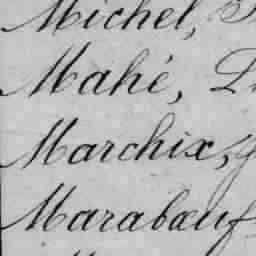 Michel,
Mahé,
Marchix,
Marabœuf